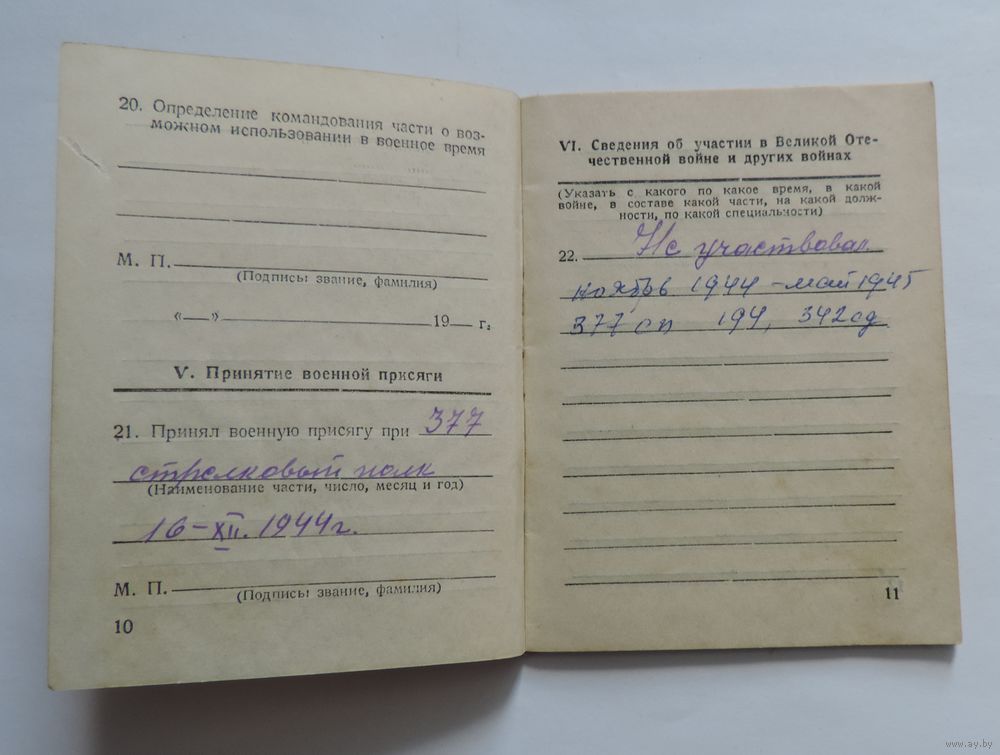 20. Определение командования части о воз-
можном использовании в военное время
М. П.
(Подпись званне, фамилия)
«—»
19— г.
V. Принятие военной присяги
21. Принял военную присягу при 377
стрелковый полк
(Наименование части, число, месяц и год)
16-XII. 1944г.
М. П.
(Подпись званне, фамилия)
10
VI. Сведения об участии в Великой Оте-
чественной войне и других войнах
(Указать с какого по какое время, в какой
войне, в составе какой части, на какой долж-
ности, по какой специальности)
22. Не участвовал
ноябрь 1944 - май 1945
377 сп 194, 342 сд
11
www.ay.by